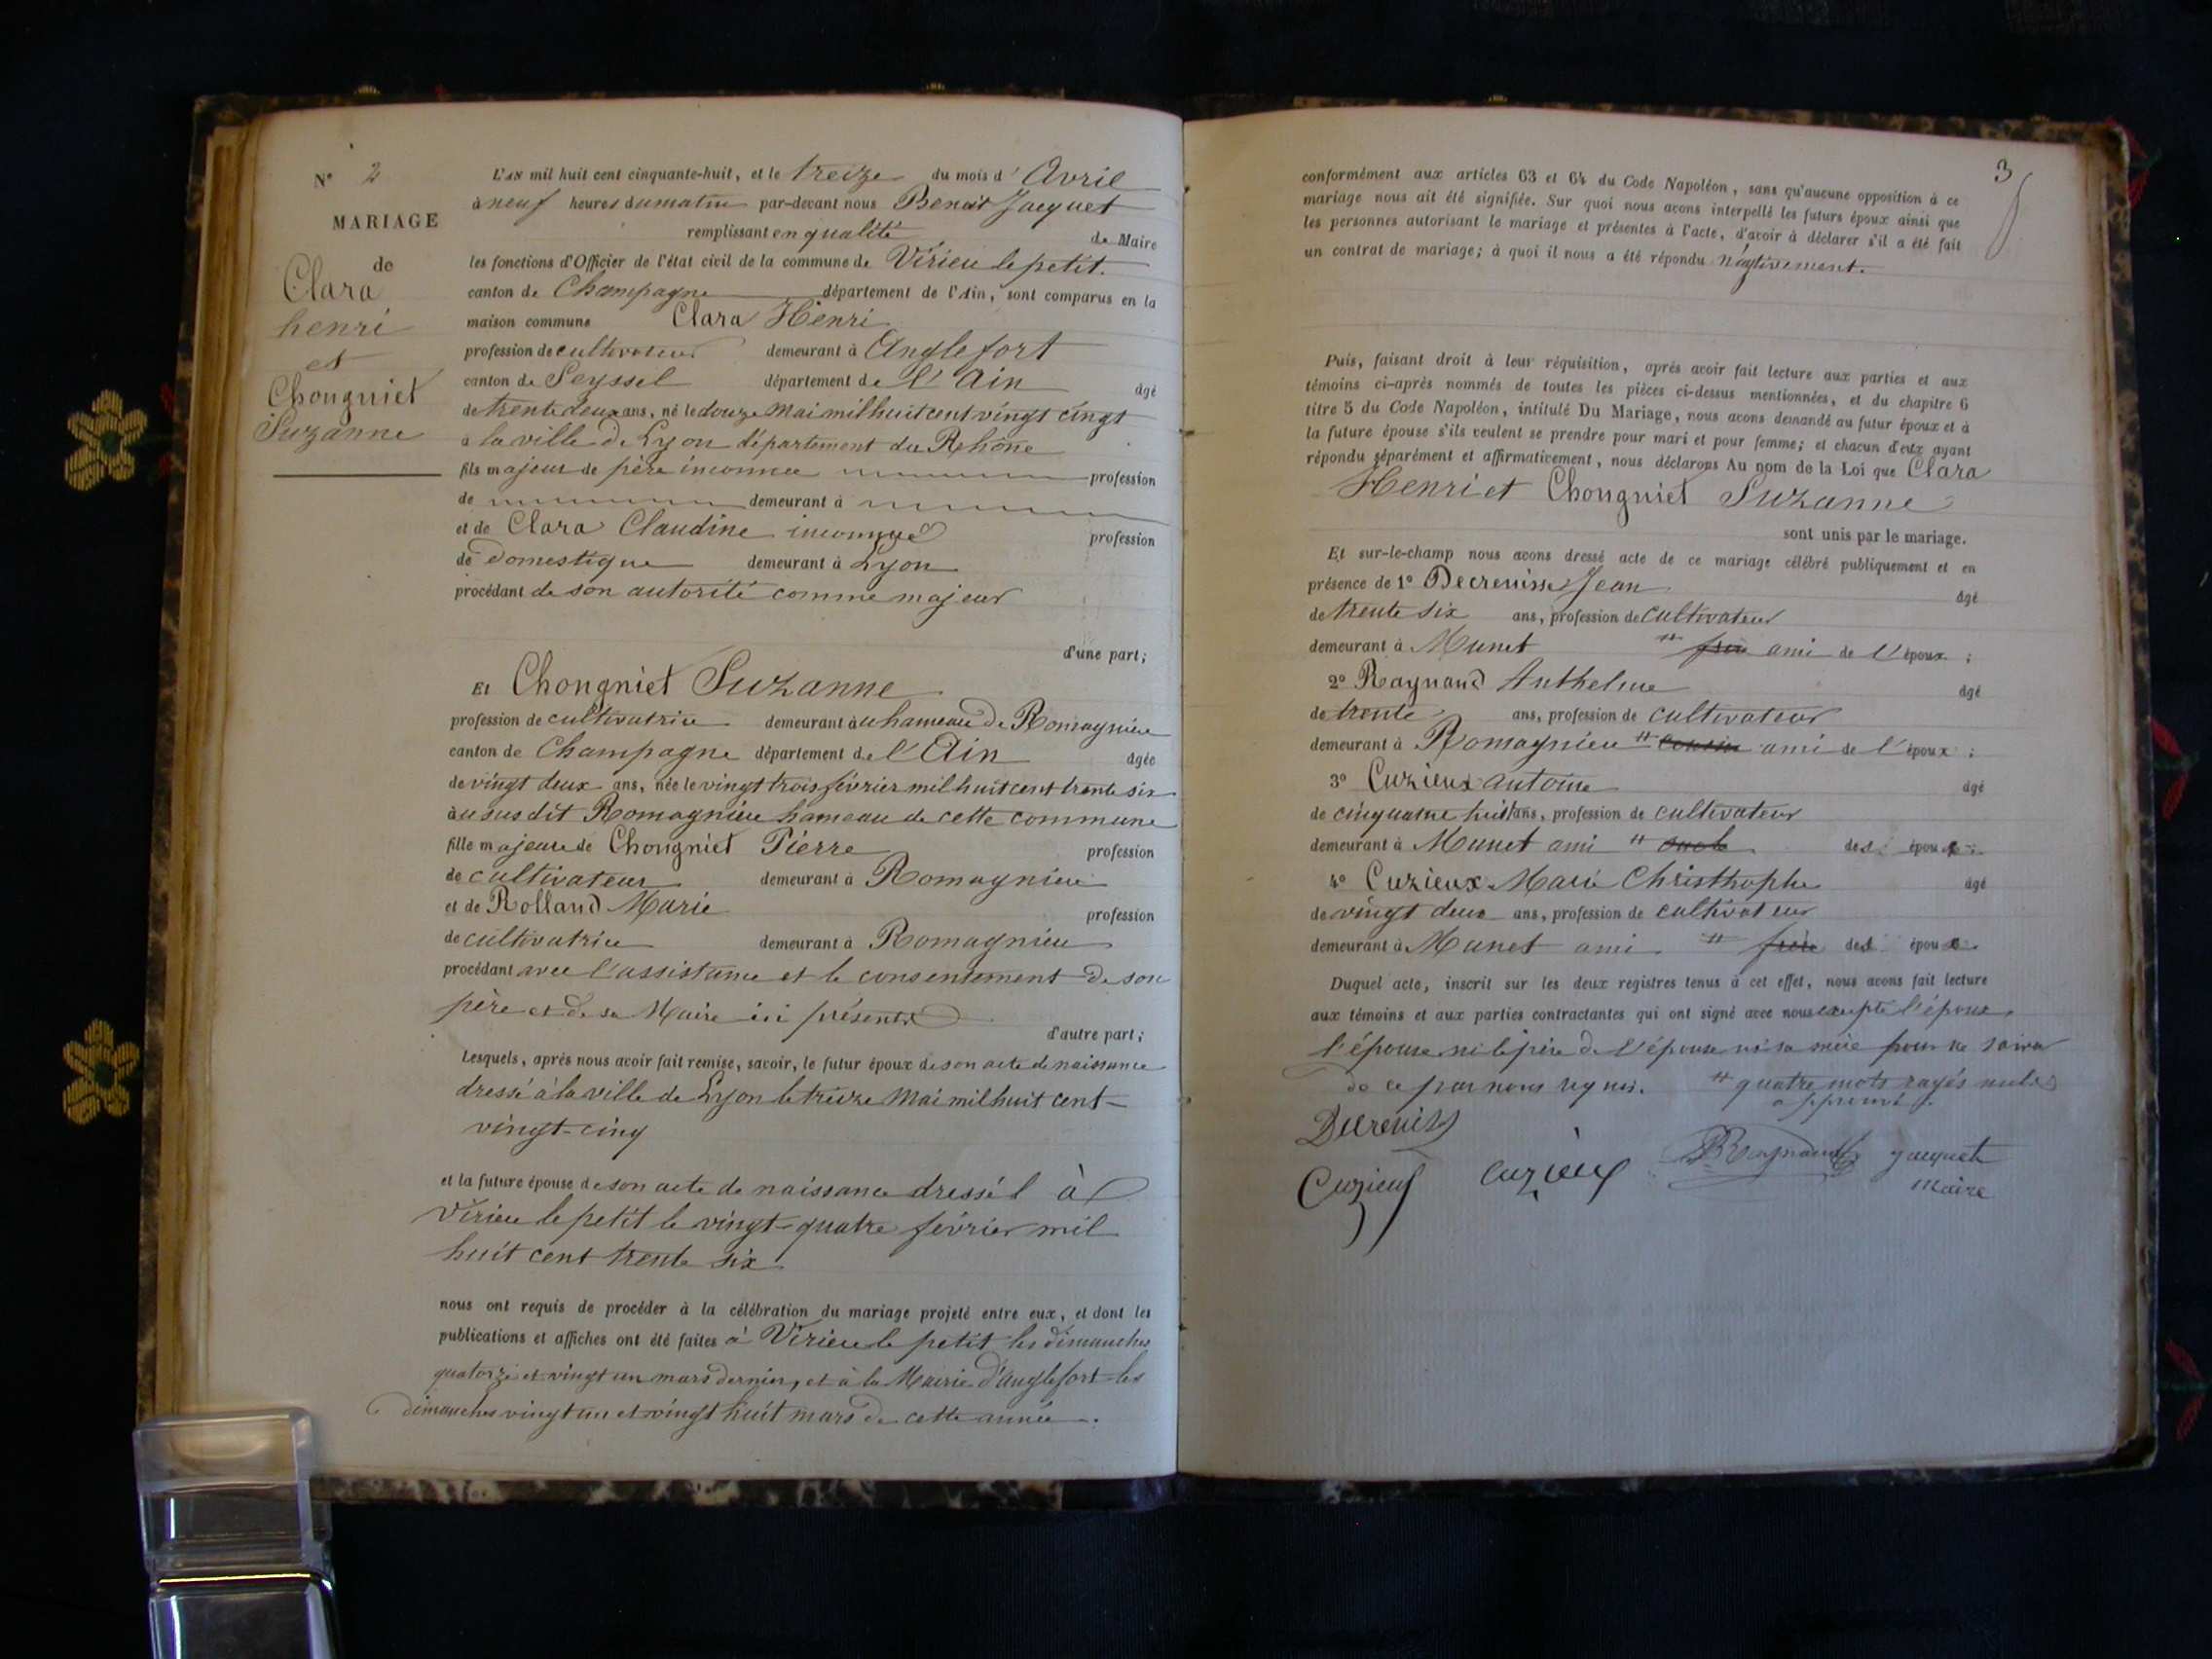 N° 2
MARIAGE
de
Clara
henri
et
Chongniet
Suzanne
L'AN mil huit cent cinquante-huit, et le treize du mois d'Avril
à neuf heures du matin par-devant nous Benoit Jacquet
remplissant en qualité de Maire
les fonctions d'Officier de l'état civil de la commune de Virieu le petit.
canton de Champagne département de l'Ain, sont comparus en la
maison commune Clara Henri
profession de cultivateur demeurant à Anglefort
canton de Seyssel département de l'Ain âgé
de trente deux ans, né le douze Mai mil huit cent vingt cinq
à la ville de Lyon département du Rhône
fils majeur de père inconnu profession
de demeurant à
et de Clara Claudine inconnue profession
de Domestique demeurant à Lyon
procédant de son autorité comme majeur
d'une part;
Et Chongniet Suzanne
profession de cultivatrice demeurant à u hameau de Romagnieu
canton de Champagne département de l'Ain âgée
de vingt deux ans, née le vingt trois février mil huit cent trente six
à u susdit Romagnieu hameau de cette commune
fille majeure de Chongniet Pierre profession
de cultivateur demeurant à Romagnieu
et de Rolland Marie profession
de cultivatrice demeurant à Romagnieu
procédant avec l'assistance et le consentement de son
père et de sa Maire ici présents
d'autre part;
Lesquels, après nous avoir fait remise, savoir, le futur époux de son acte de naissance
dressé à la ville de Lyon le treize Mai mil huit cent
vingt-cinq
et la future épouse de son acte de naissance dressé à
Virieu le petit le vingt-quatre février mil
huit cent trente six
nous ont requis de procéder à la célébration du mariage projeté entre eux, et dont les
publications et affiches ont été faites à Virieu le petit les dimanches
quatorze et vingt un mars dernier, et à la Mairie d'anglefort les
dimanches vingt un et vingt huit mars de cette année.
3
conformément aux articles 63 et 64 du Code Napoléon, sans qu'aucune opposition à ce
mariage nous ait été signifiée. Sur quoi nous avons interpellé les futurs époux ainsi que
les personnes autorisant le mariage et présentes à l'acte, d'avoir à déclarer s'il a été fait
un contrat de mariage; à quoi il nous a été répondu négtivement.
Puis, faisant droit à leur réquisition, après avoir fait lecture aux parties et aux
témoins ci-après nommés de toutes les pièces ci-dessus mentionnées, et du chapitre 6
titre 5 du Code Napoléon, intitulé Du Mariage, nous avons demandé au futur époux et à
la future épouse s'ils veulent se prendre pour mari et pour femme; et chacun d'eux ayant
répondu séparément et affirmativement, nous déclarons Au nom de la Loi que Clara
Henri et Chongniet Suzanne
sont unis par le mariage.
Et sur-le-champ nous avons dressé acte de ce mariage célébré publiquement et en
présence de 1° Decrenisse Jean âgé
de trente six ans, profession de cultivateur
demeurant à Munet # frère ami de l'époux;
2° Raynaud Anthelme âgé
de trente ans, profession de cultivateur
demeurant à Romagnieu # cousin ami de l'époux;
3° Cuzieux antoine âgé
de cinquante huit ans, profession de cultivateur
demeurant à Munet ami # oncle des époux
4° Cuzieux Marie Christhophe âgé
de vingt deux ans, profession de cultivateur
demeurant à Munet ami # frère des époux
Duquel acte, inscrit sur les deux registres tenus à cet effet, nous avons fait lecture
aux témoins et aux parties contractantes qui ont signé avec nous excepté l'époux
l'épouse ni le père de l'épouse ni sa mère pour ne savoir
de ce par nous requis. # quatre mots rayés nuls
approuvé
Decreniss
Cuzieux cuzieux Raynaud jacquet
Maire